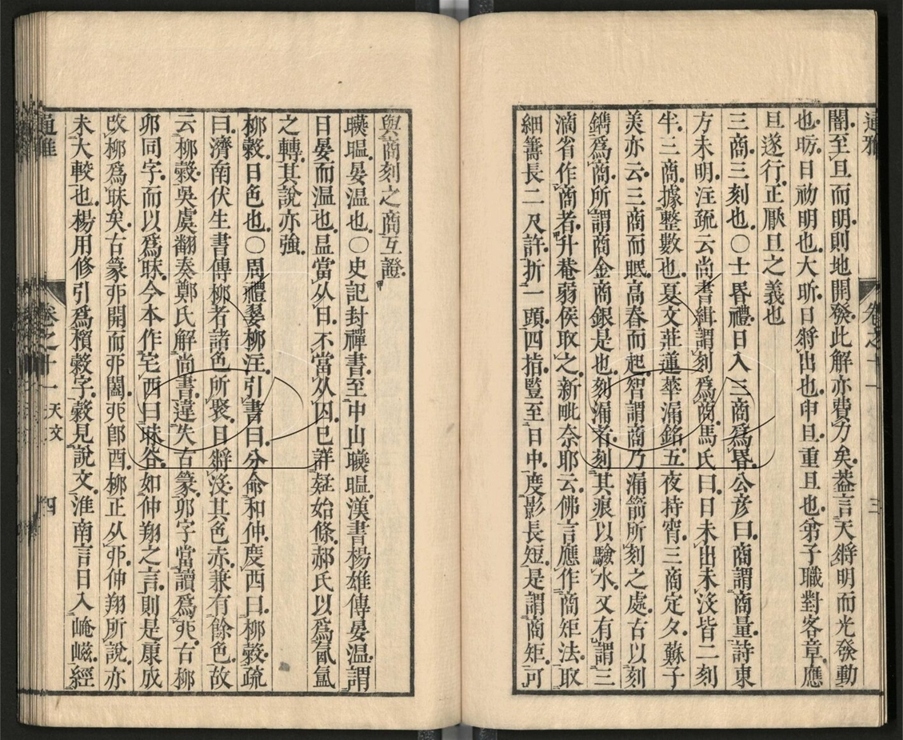 通雅 卷之十一 三
闇至旦而明則地開發此解亦費力矣葢言天將明而光發動
也昉日初明也大昕日將出也申旦重旦也弟子職對客章應
且遂行正厭旦之義也
三商三刻也○士昏禮日入三商爲昬公彥曰商謂商量詩東
方未明注疏云尚書緯謂刻爲商馬氏曰日未出未沒皆二刻
半二商據整數也夏文莊蓮華漏銘五夜持宵三商定夕蘇子
美亦云三商而眠高舂而起智謂商乃漏箭所刻之處古以刻
鐫爲商所謂商金商銀是也刻漏者刻其痕以驗水又有謂三
滴省作商者升菴弱侯取之新毗奈耶云佛言應作商矩法取
細籌長二尺許折一頭四指豎至日中度影長短是謂商矩可
與商刻之商互證
曣㬈晏温也○史記封禪書至中山曣㬈漢書楊雄傳晏温謂
日晏而温也昷當从日不當从囚巳詳䊸始條郝氏以爲氤氳
之轉其說亦強
柳穀日色也○周禮翣柳注引書曰分命和仲度西曰柳穀疏
曰濟南伏生書傳柳者諸色所聚日將沒其色赤兼有餘色故
云柳穀吳虞翻奏鄭氏解尚書違失古篆卯字當讀爲丣古柳
卯同字而以爲昧今本作宅西曰昧谷如仲翔之言則是康成
改柳爲昧矣古篆丣開而丣闔丣卽酉柳正从丣仲翔所說亦
未大較也楊用修引爲檳穀字穀見說文淮南言日入崦嵫經
通雅 卷之十一 天文 四